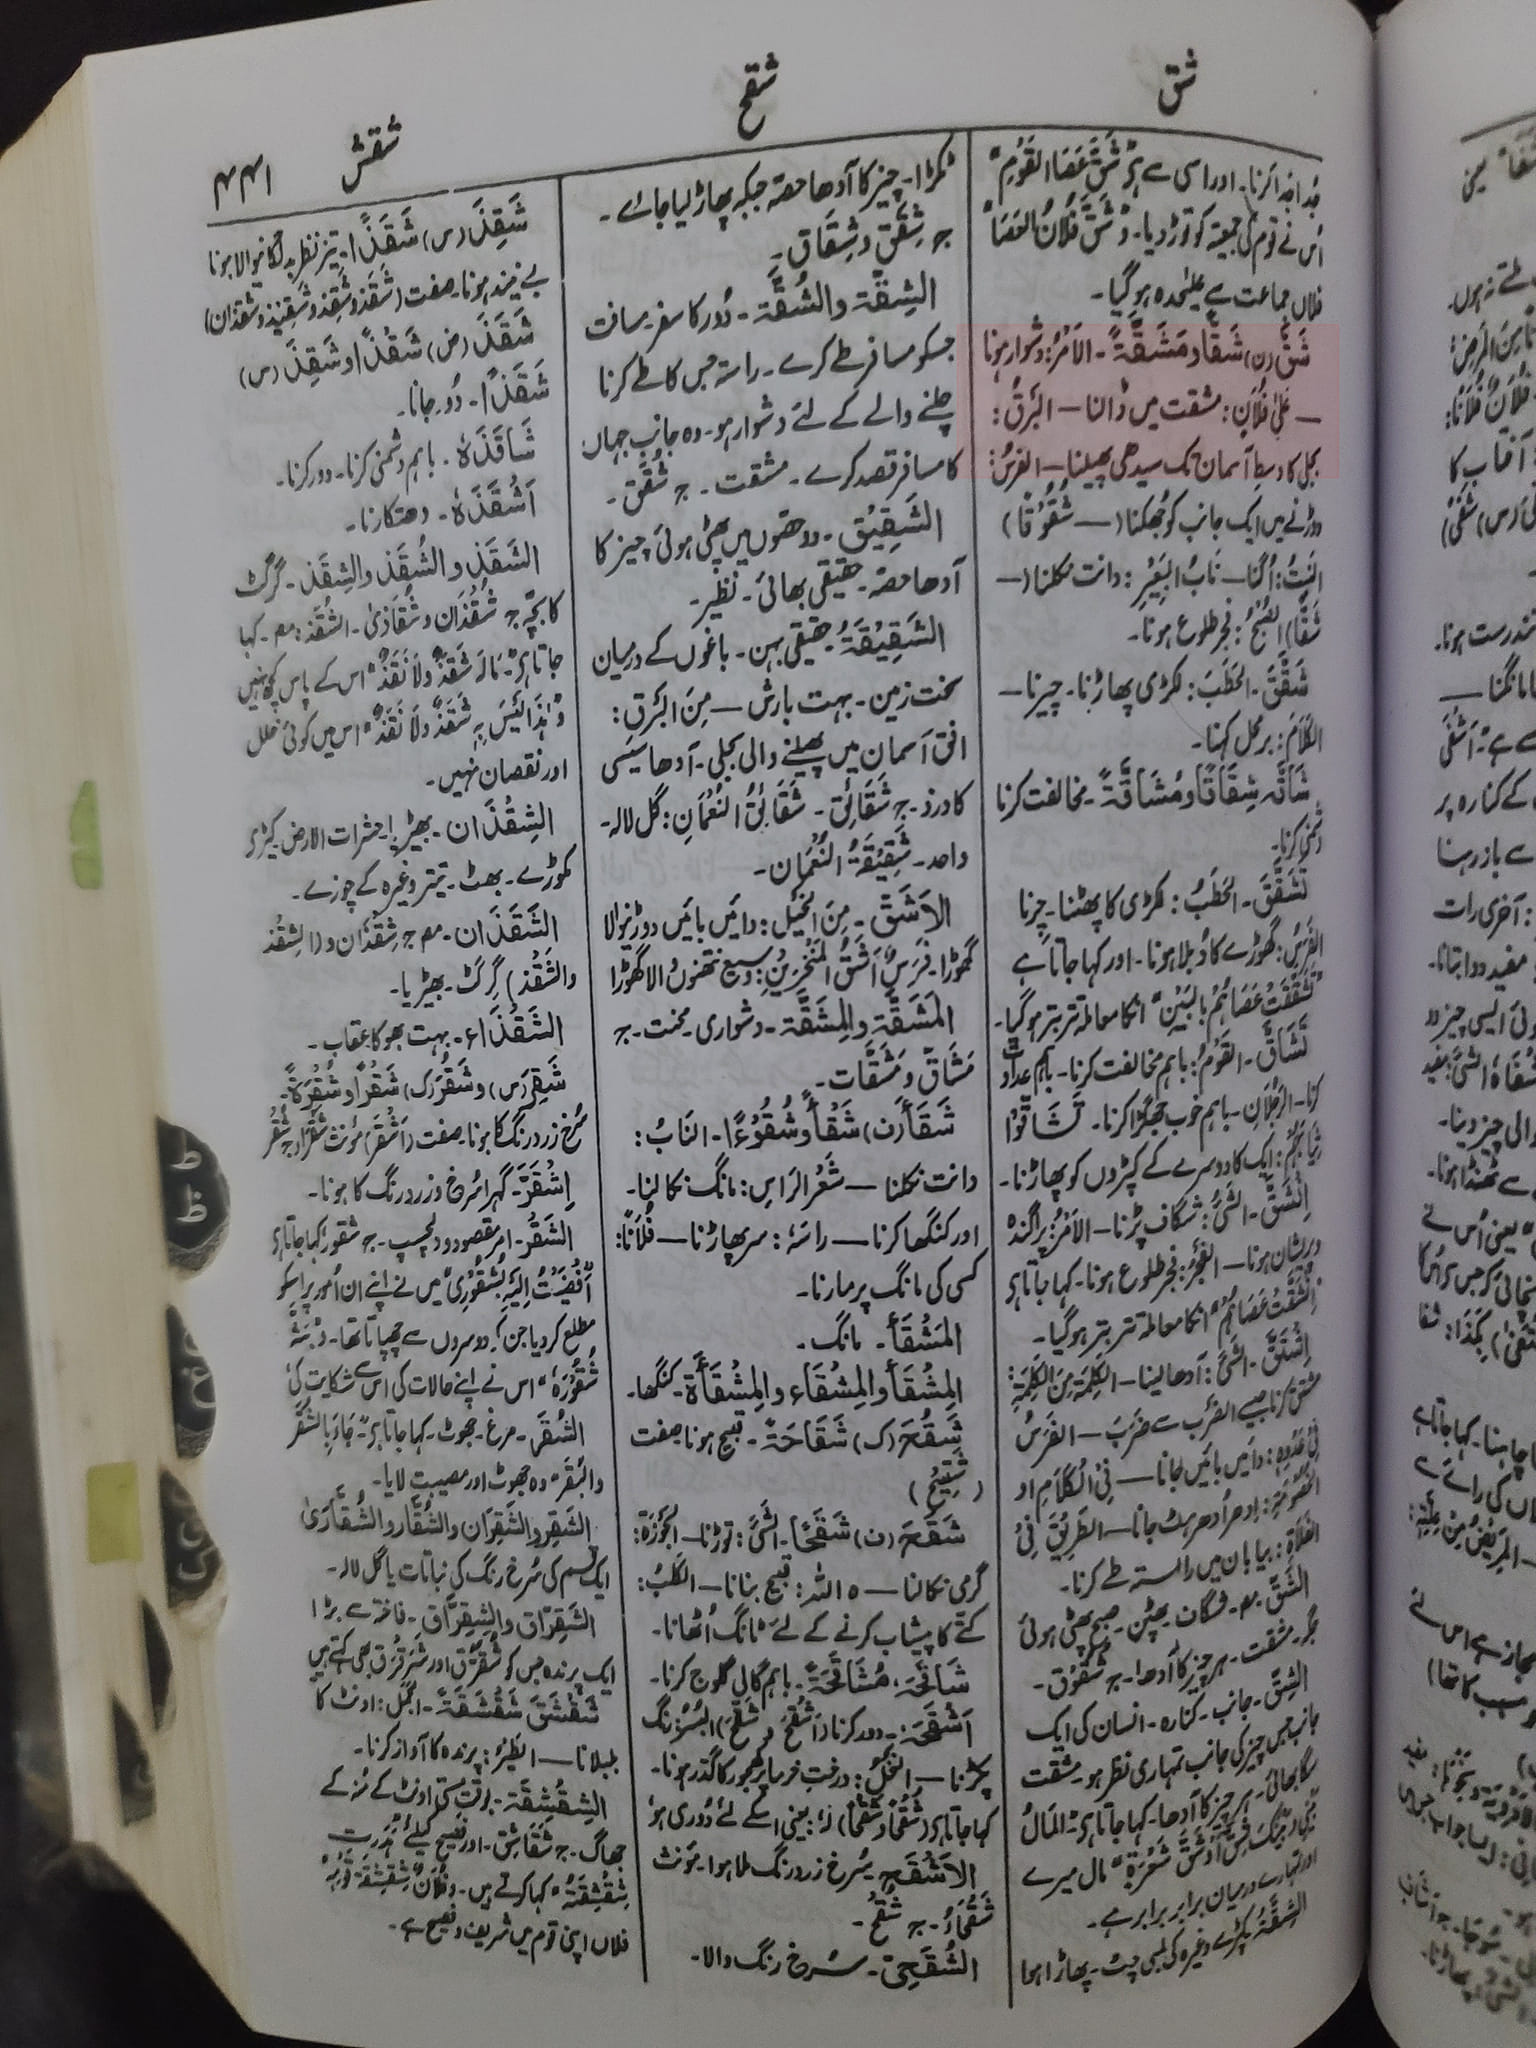 شق
شقح
شقش
۴۴۱
جُدا جُدا کرنا۔ اور اسی سے ہے "شَقَّ عَصَا القَوْمِ"
اُس نے قوم کی جمعیۃ کو توڑ دیا۔ وَ"شَقَّ فُلَانٌ العَصَا"
فلاں جماعت سے علیٰحدہ ہو گیا۔
شَقَّ (ن) شَقًّا و مَشَقَّةً۔ الاَمْرُ: دشوار ہونا
— عَلیٰ فُلَانٍ: مشقت میں ڈالنا — البَرْقُ:
بجلی کا وسط آسمان تک سیدھی پھیلنا — الفَرَسُ:
دوڑنے میں ایک جانب کو جُھکنا (— شُقُوْقًا)
النَبْتُ: اُگنا — نَابُ البَعِیْرِ: دانت نکلنا (—
شَقًّا) الصُبْحُ: فجر طلوع ہونا۔
شَقَّقَ۔ الحَطَبَ: لکڑی پھاڑنا۔ چیرنا —
الکَلَامَ: بر محل کہنا۔
شَاقَّہ شِقَاقًا و مُشَاقَّةً۔ مخالفت کرنا
دشمنی کرنا۔
تَشَقَّقَ۔ الحَطَبُ: لکڑی کا پھٹنا۔ چرنا
الفَرَسُ: گھوڑے کا دُبلا ہونا۔ اور کہا جاتا ہے
"تَشَقَّقَتْ عَصَاهُمْ بِالبَیْنِ" انکا معاملہ تتر بتر ہو گیا۔
تَشَاقَّ۔ القَوْمُ: باہم مخالفت کرنا۔ باہم عداوت
کرنا۔ الرَجُلَانِ۔ باہم خوب جھگڑا کرنا۔ تَشَاقُّوْا
ثِیَابَهُمْ: ایک کا دوسرے کے کپڑوں کو پھاڑنا۔
اِنْشَقَّ۔ الشَیُ: شگاف پڑنا — الاَمْرُ: پراگندہ
و پریشان ہونا — الفَجْرُ: فجر طلوع ہونا۔ کہا جاتا ہے
"اِنْشَقَّتْ عَصَاهُمْ" انکا معاملہ تتر بتر ہو گیا۔
اِشْتَقَّ۔ الشَیَ: آدھا لینا — الکَلِمَةَ مِنَ الکَلِمَةِ:
مشتق کرنا جیسے الضَرْب سے ضَرَبَ — الفَرَسُ
فِیْ عَدْوِہٖ: دائیں بائیں جانا — فِی الکَلَامِ او
الخُصُوْمَةِ: اِدھر اُدھر ہٹ جانا — الطَرِیْقَ فِیْ
الفَلَاةِ: بیابان میں راستہ طے کرنا۔
الشَقّ۔ مص۔ شگاف۔ پھٹن۔ صبح۔ پھٹی ہوئی
جگہ۔ مشقت۔ ہر چیز کا آدھا۔ ج شُقُوْق۔
الشِقّ۔ جانب۔ کنارہ۔ انسان کی ایک
جانب جس چیز کی جانب تمہاری نظر ہو۔ مشقت
سگا بھائی۔ ہر چیز کا آدھا۔ کہا جاتا ہے "المَالُ
بَیْنِیْ وَبَیْنَکَ شِقَّ أَوْ شَقَّ شَعْرَةٍ" مال میرے
اور تمہارے درمیان برابر برابر ہے۔
الشِقَّة۔ کپڑے وغیرہ کی لمبی چٹ۔ پھاڑا ہوا
ٹکڑا۔ چیز کا آدھا حصہ جبکہ پھاڑ لیا جائے۔
ج شِقَق و شِقَاق۔
الشِقَّة والشُقَّة۔ دُور کا سفر۔ مسافت
جسکو مسافر طے کرے۔ راستہ جس کا طے کرنا
چلنے والے کے لئے دشوار ہو۔ وہ جانب جہاں
کا مسافر قصد کرے۔ مشقت۔ ج شُقَق۔
الشَقِیْق۔ دو حصوں میں پھٹی ہوئی چیز کا
آدھا حصہ۔ حقیقی بھائی۔ نظیر۔
الشَقِیْقَةُ۔ حقیقی بہن۔ باغوں کے درمیان
سخت زمین۔ بہت بارش — مِنَ البَرْقِ:
افق آسمان میں پھیلنے والی بجلی۔ آدھا سیسی
کا درد۔ ج شَقَائِق۔ شَقَائِقُ النُعْمَانِ: گل لالہ۔
واحد۔ شَقِیْقَةُ النُعْمَان۔
الاَشَقّ۔ مِنَ الخَیْلِ: دائیں بائیں دوڑنیوالا
گھوڑا۔ فَرَسٌ اَشَقُّ المَنْخَرَیْنِ: وسیع نتھنوں والا گھوڑا
المَشَقَّة والمِشَقَّة۔ دشواری۔ محنت۔ ج
مَشَاقّ و مَشَقَّات۔
شَقَأَ (ن) شَقْأً و شُقُوْءًا۔ النَابُ:
دانت نکلنا — شَعْرَ الرَاسِ: مانگ نکالنا۔
اور کنگھا کرنا — رَاسَہٗ: سر پھاڑنا — فُلَانًا:
کسی کی مانگ پر مارنا۔
المَشْقَأ۔ مانگ۔
المِشْقَأ والمِشْقَاء والمِشْقَأَة۔ کنگھا۔
شَقُحَ (ک) شَقَاحَةً۔ قبیح ہونا۔ صفت
(شَقِیْح)
شَقَحَ (ن) شَقْحًا۔ الشَیَ: توڑنا۔ الجَوْزَةَ:
گری نکالنا — ہ اللہُ: قبیح بنانا — الکَلْبُ:
کتّے کا پیشاب کرنے کے لئے ٹانگ اُٹھانا۔
شَاقَحَہ، مُشَاقَحَةً۔ باہم گالی گلوج کرنا۔
اَشْقَحَہ۔ دور کرنا (اَشْقَحَ و شَقَّحَ) البُسْرُ: رنگ
پکڑنا — النَخْلُ: درخت خرما پر کھجور کا گدّر ہونا۔
کہا جاتا ہے (شُقْحًا و شَقْحًا) لَہٗ: یعنی اسکے لئے دُوری ہو
الاَشْقَح۔ سُرخ زرد رنگ ملا ہوا۔ مؤنث
شَقْحَاءُ۔ ج شُقْحٌ۔
الشُقَحِیّ۔ سُرخ رنگ والا۔
شَقِذَ (س) شَقَذًا۔ تیز نظر بد لگانیوالا ہونا
بے نیند ہونا۔ صفت (شَقَذ و شَقِذ و شَقِیْذ و شَقْذَان)
شَقَذَ (ض) شَقْذًا و شَقِذَ (س)
شَقَذًا۔ دُور جانا۔
شَاقَذَہٗ۔ باہم دشمنی کرنا۔ دور کرنا۔
اَشْقَذَہٗ۔ دھتکارنا۔
الشَقَذ و الشُقَذ والشِقَذ۔ گرگٹ
کا بچّہ ج شِقْذَان و شَقَاذیٰ۔ الشَقَذ: مص۔ کہا
جاتا ہے "مَالَہٗ شَقَذٌ وَلَا نَقَذٌ" اس کے پاس کچھ نہیں
وَ"هٰذَا لَیْسَ بِہٖ شَقَذٌ وَلَا نَقَذٌ" اس میں کوئی خلل
اور نقصان نہیں۔
الشِقْذَان۔ بھیڑیا۔ حشرات الارض۔ کیڑے
مکوڑے۔ بھٹ۔ تیتر وغیرہ کے چوزے۔
الشَقَذَان۔ مص ج شِقْذَان و (الشِقْذ
والشَقْذ) گرگٹ۔ بھیڑیا۔
الشَقْذَاء۔ بہت بھوکا عقاب۔
شَقِرَ (س) و شَقُرَ (ک) شَقَرًا و شُقْرَةً۔
سُرخ زرد رنگ کا ہونا۔ صفت (اَشْقَر) مؤنث شَقْرَاء ج شُقْر
اِشْقَرَّ۔ گہرا سُرخ و زرد رنگ کا ہونا۔
الشَقْر۔ امر مقصود و دلچسپ۔ ج شُقُور۔ کہا جاتا ہے
"اَفْضَیْتُ اِلَیْہِ بِشُقُوْرِیْ" میں نے اپنے ان اُمور پر اسکو
مطلع کر دیا جن کو دوسروں سے چھپاتا تھا۔ وَ"بَثَّہٗ
شُقُوْرَہٗ" اس نے اپنے حالات کی اس سے شکایت کی
الشُقَر۔ مرغ۔ جھوٹ۔ کہا جاتا ہے "جَاءَ بِالشُقَرِ
والبُقَرِ" وہ جھوٹ اور مصیبت لایا۔
الشَقِر والشَقِرَان والشُقَّار والشُقَّارَیٰ
ایک قسم کی سُرخ رنگ کی نباتات یا گل لالہ۔
الشَقِرَّاق والشِقِرَّاق۔ فاختہ سے بڑا
ایک پرندہ جس کو شَقَرَّاق اور شَرَقْرَق بھی کہتے ہیں
شَقْشَقَ شَقْشَقَةً۔ الجَمَلُ: اونٹ کا
بلبلانا — الطَیْرُ: پرندہ کا آواز کرنا۔
الشِقْشِقَة۔ بوقت مستی اونٹ کے منہ کے
جھاگ۔ ج شَقَاشِق۔ اور فصیح کیلئے "هَدَرَتْ
شِقْشِقَتُہٗ" کہا کرتے ہیں۔ وَ"فُلَانٌ شِقْشِقَةُ قَوْمِہٖ"
فلاں اپنی قوم میں شریف و فصیح ہے۔
ط
ظ
ع
غ
ک